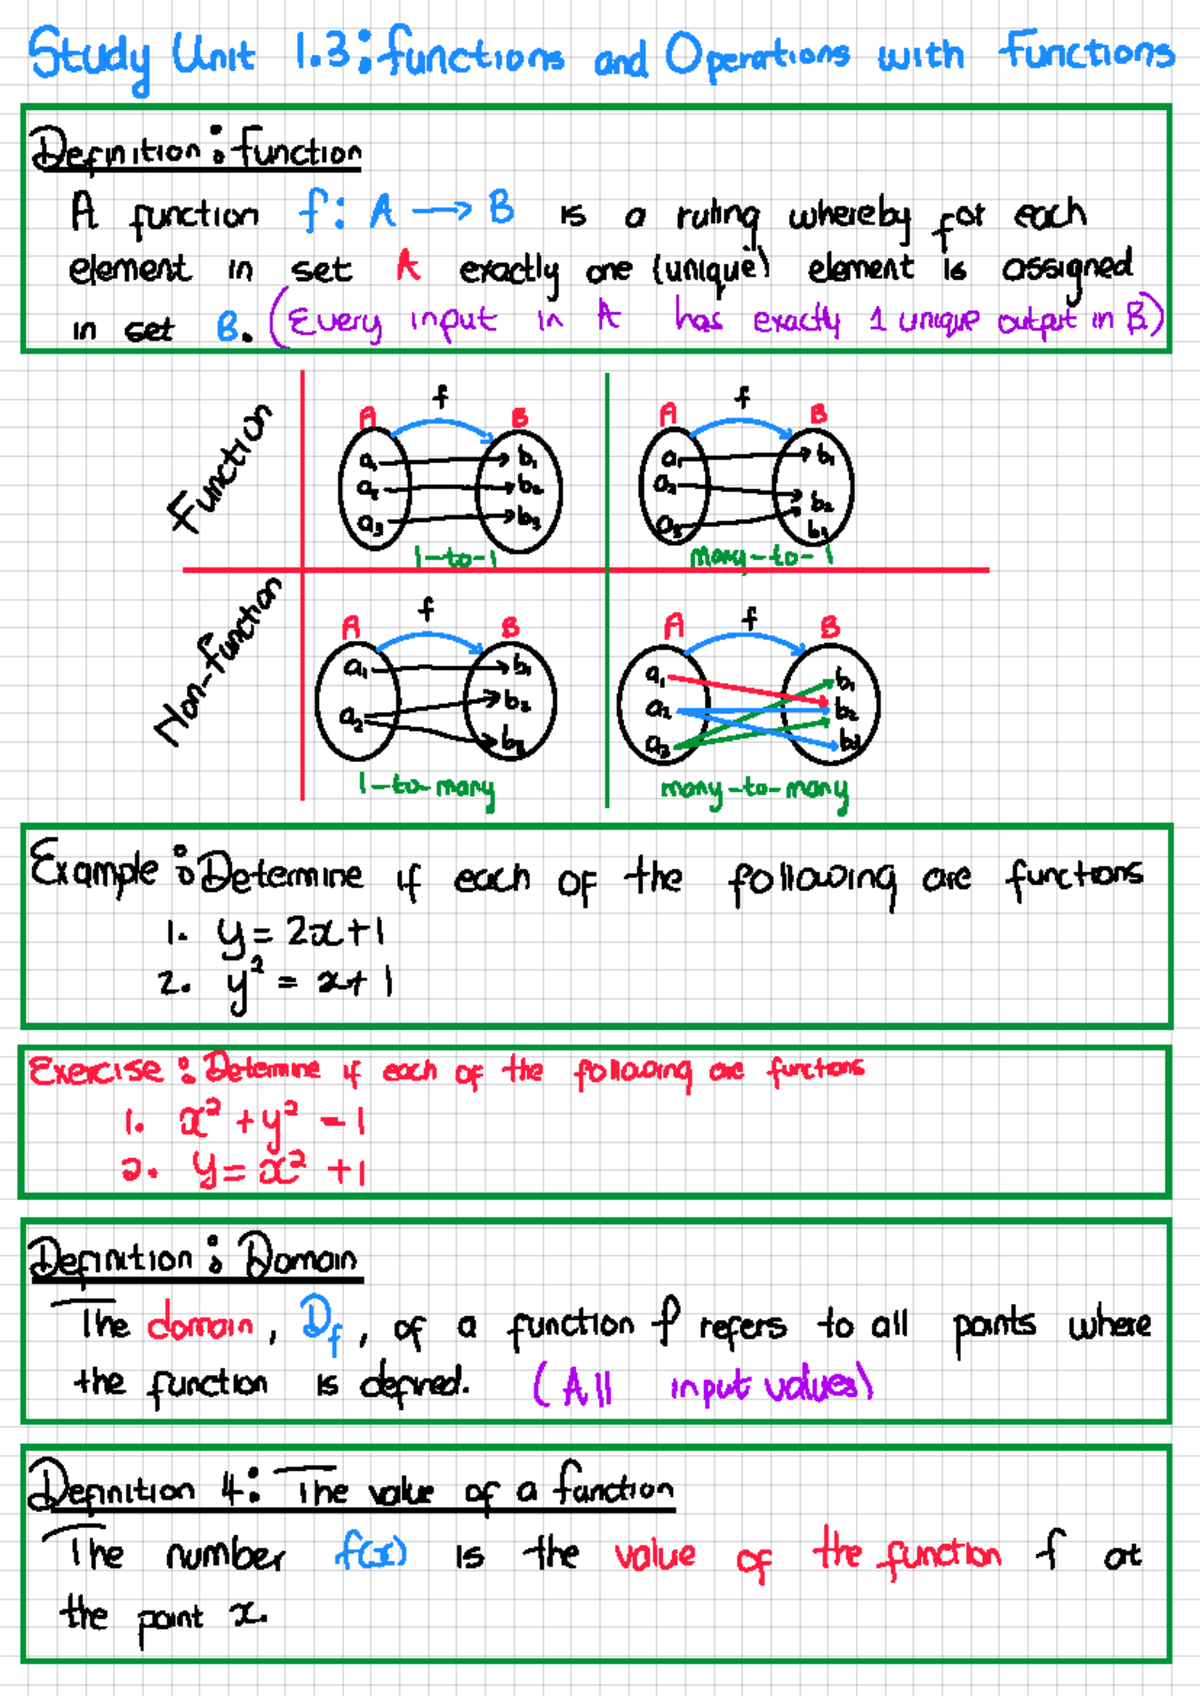 Study Unit 1.3: functions and Operations with Functions
Definition: function
A function f: A → B is a ruling whereby for each
element in set A exactly one (unique) element is assigned
in set B. (Every input in A has exactly 1 unique output in B)
Function
f
A B
a₁ b₁
a₂ b₂
a₃ b₃
1-to-1
f
A B
a₁ b₁
a₂ b₂
a₃ b₃
many-to-1
Non-function
f
A B
a₁ b₁
a₂ b₂
b₃
1-to-many
f
A B
a₁ b₁
a₂ b₂
a₃ b₃
many-to-many
Example: Determine if each of the following are functions
1. y = 2x+1
2. y² = x+1
Exercise: Determine if each of the following are functions
1. x² + y² = 1
2. y = x² + 1
Definition: Domain
The domain, D_f, of a function f refers to all points where
the function is defined. (All input values)
Definition 4: The value of a function
The number f(x) is the value of the function f at
the point x.